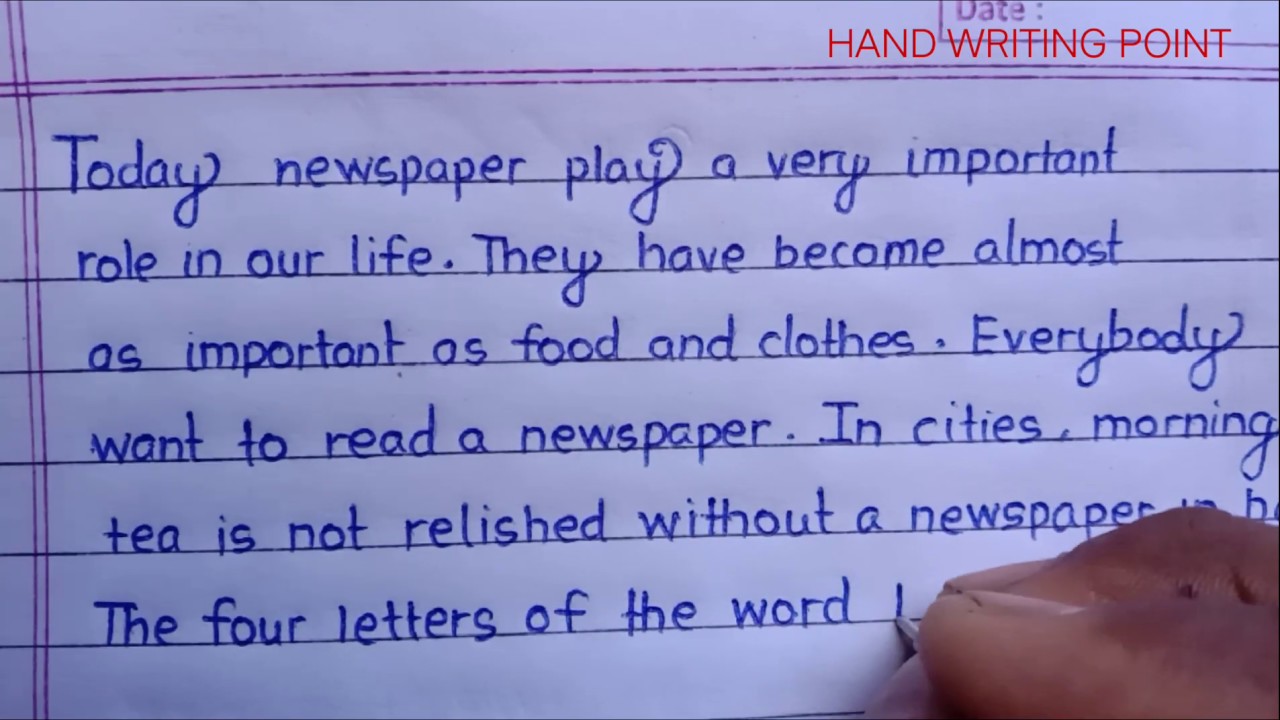 Date :
HAND WRITING POINT
Today newspaper play a very important
role in our life. They have become almost
as important as food and clothes. Everybody
want to read a newspaper. In cities, morning
tea is not relished without a newspaper in
The four letters of the word